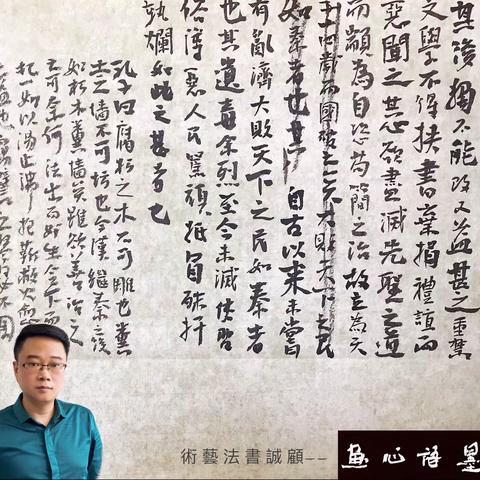 其後獨不能改又益甚之重禁
文學不得挾書棄捐禮誼而
惡聞之其心欲盡滅先聖之道
而顓為自恣苟簡之治故立為天
子十四歲而國破亡矣大敗天下之民
如秦者也其自古以來未嘗
有亂濟大敗天下之民如秦者
也其遺毒余烈至今未滅使習
俗薄惡人民嚚頑抵冒殊扞
孰爛如此之甚者也
孔子曰腐朽之木不可雕也糞
土之墻不可圬也今漢繼秦之後
如朽木糞墻矣雖欲善治之
亡可奈何法出而奸生令下而
起如以湯止沸抱薪救火
顧誠書法藝術
墨語心画